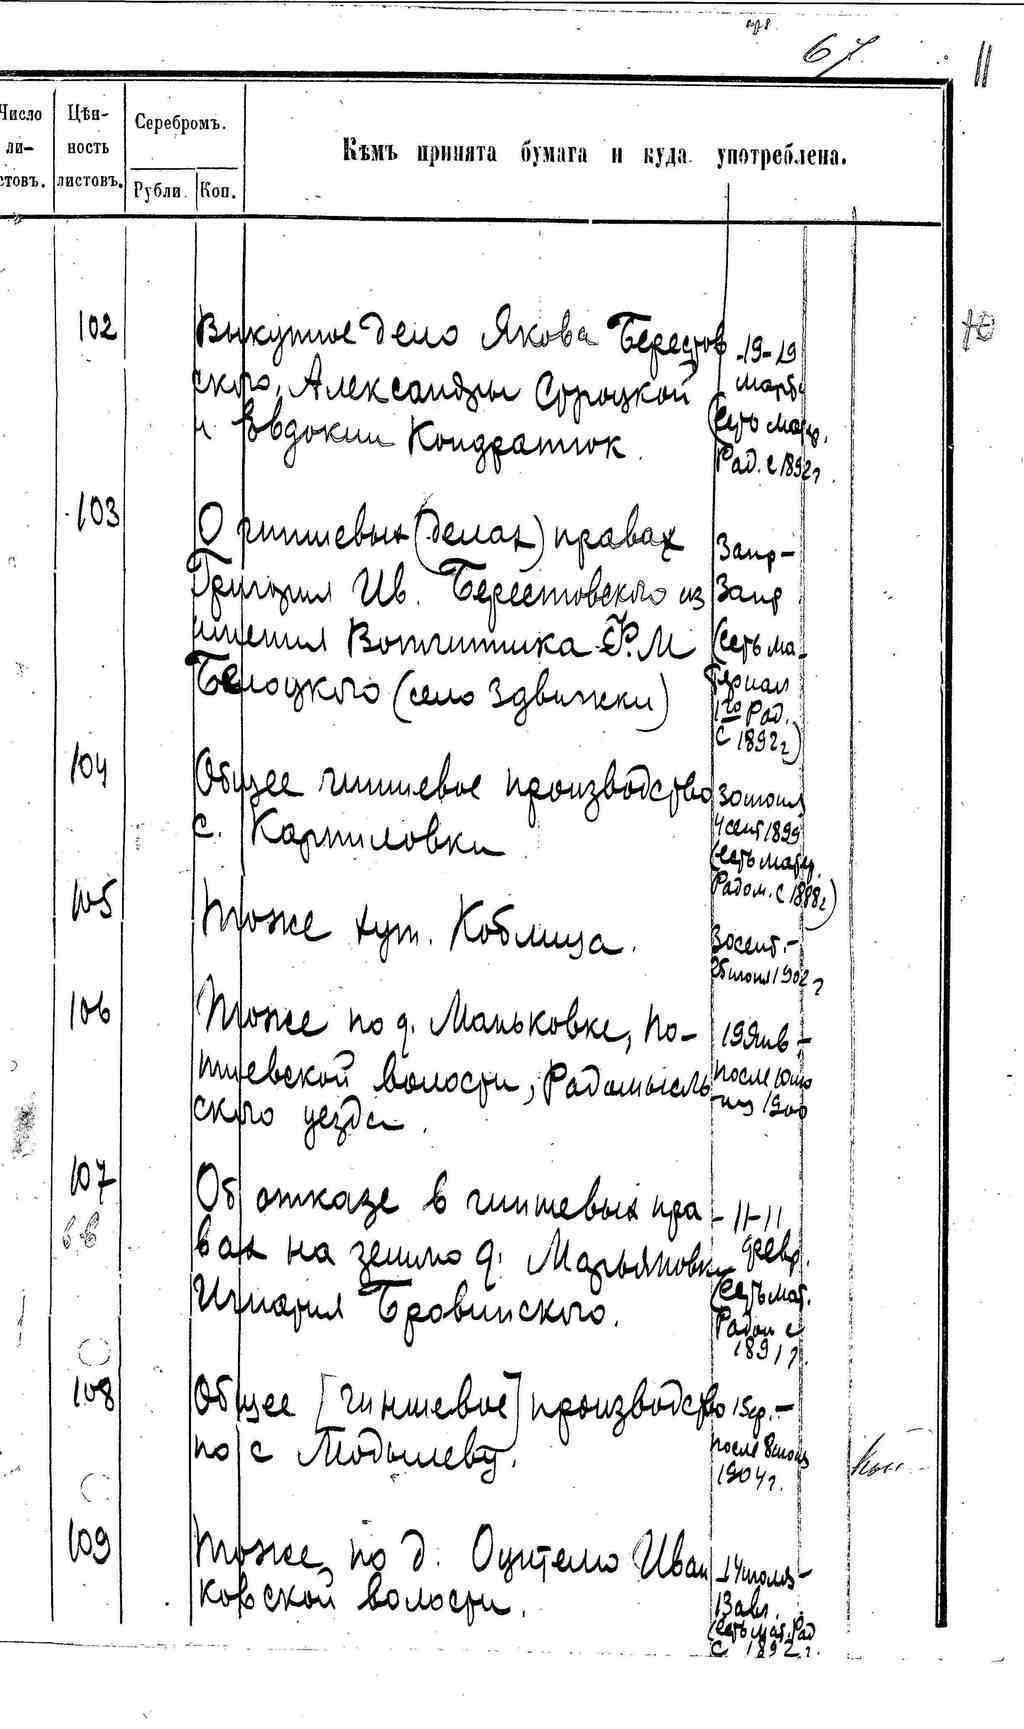 67
11
Число ли-стовъ.
Цѣн-ность листовъ.
Серебромъ.
Рубли. Коп.
Кѣмъ принята бумага и куда употреблена.
102
Выкупное дело Якова Берестов
ского, Александры Сороцкой
и Евдокии Кондратюк.
-19-19
марта
(есть матер.
Рад. с 1892г
103
О чиншевых (делах) правах
Григория Ив. Берестовского из
имения Вотчитника Ф.М
Белоцкого (село Здвижки)
(есть ма-
териал
1го Рад.
с 1892г)
104
Общее чиншевое производство
с. Карпиловки
30 июля
4 сент 1899
(есть матер.
Радом. с 1888г)
105
Тоже хут. Коблица.
30 сент.-
25 июля 1902г
106
Тоже по д. Маньковке, по-
тиевской волости, Радомысль
ского уезда.
19 Янв-
после
1900
107
Об отказе в чиншевых пра
вах на землю д. Марьяновки
Игнатия Бровинского.
-11-11
февр.
(есть мат.
Радом с
1891г.
108
Общее [чиншевое] производство
по с Модылеву.
после 8 июля
1904г.
109
Тоже по д. Оцителю Иван
ковской волости.
14 июля-
13 авг.
(есть мат. Рад
с 1892г.